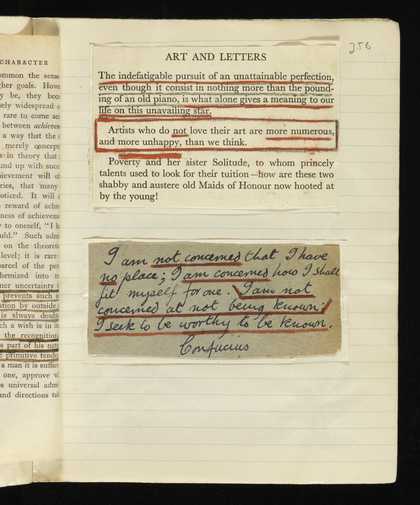 CHARACTER
ommon the sense
gher goals. How
y be, they bec
ely widespread
rare to come ac
between achieve
a way that the
merely concep
in theory that
und up with suc
ievement will
ries, that many
oticed. It will
reward of achie
ness of achievem
y to oneself, "I
uld." Such adm
on the theore
level; it is rare
arcel of the per
hemized into
ner uncertainty
prevents such
ation by outside
is always doub
ch a wish is in
the recognition
s part of his
e primitive tend
a man it is suffi
one, approve
s universal adm
nd directions ta
256
ART AND LETTERS
The indefatigable pursuit of an unattainable perfection,
even though it consist in nothing more than the pound-
ing of an old piano, is what alone gives a meaning to our
life on this unavailing star.
Artists who do not love their art are more numerous,
and more unhappy, than we think.
Poverty and her sister Solitude, to whom princely
talents used to look for their tuition—how are these two
shabby and austere old Maids of Honour now hooted at
by the young!
I am not concerned that I have
no place; I am concerned how I shall
fit myself for one. I am not
concerned at not being known;
I seek to be worthy to be known.
Confucius